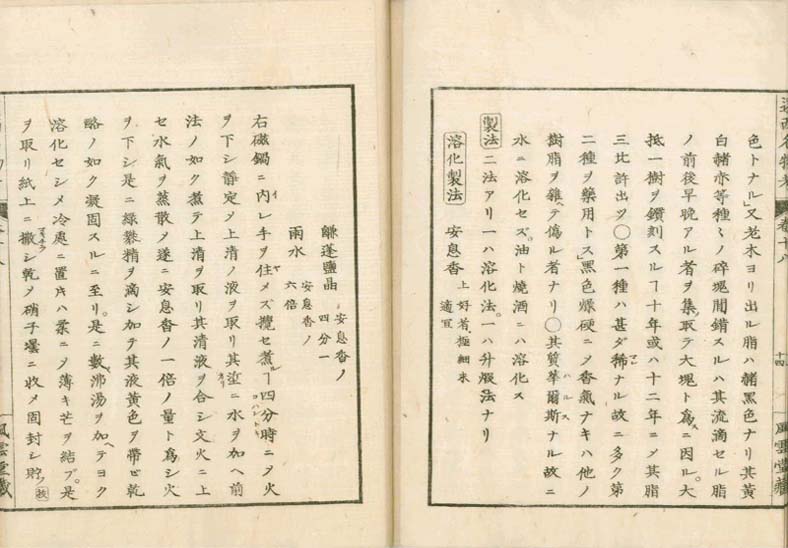 色トナル」又老木ヨリ出ル脂ハ赭黒色ナリ其黄
白赭亦等種々ノ碎塊間錯スルハ其流滴セル脂
ノ前後早晩アル者ヲ集取テ大塊ト爲スニ因ル。大
抵一樹ヲ鑽刻スルヿ十年或ハ十二年ニメ其脂
三比許出ツ〇第一種ハ甚ダ稀ナル故ニ多ク第
二種ヲ藥用トス」黒色燥硬ニメ香氣ナキハ他ノ
樹脂ヲ雜ヘテ偽ル者ナリ〇其質華爾斯ナル故ニ
水ニ溶化セズ。油ト燒酒ニハ溶化ス
製法 二法アリ一ハ溶化法。一ハ升騰法ナリ
溶化製法 安息香 上好者、極細末 適宜
鹻蓬鹽晶 安息香ノ 四分一
雨水 安息香ノ 六倍
右磁鍋ニ内レ手ヲ住メズ攪セ煮ルヿ四分時ニメ火
ヲ下シ靜定メ上清ノ液ヲ取リ其渣ニ水ヲ加ヘ前
法ノ如ク煮テ上清ヲ取リ其清液ヲ合シ文火ニ上
セ水氣ヲ蒸散メ遂ニ安息香ノ一倍ノ量ト爲シ火
ヲ下シ是ニ綠礬精ヲ滴シ加テ其液黄色ヲ帶ビ乾
酪ノ如ク凝固スルニ至リ。是ニ數沸湯ヲ加ヘテヨク
溶化セシメ冷處ニ置片ハ葉ニメ薄キ芒ヲ結ブ。是
ヲ取リ紙上ニ撒シ乾メ硝子壜ニ收メ固封シ貯フ
卷十八
十四
風雲堂藏